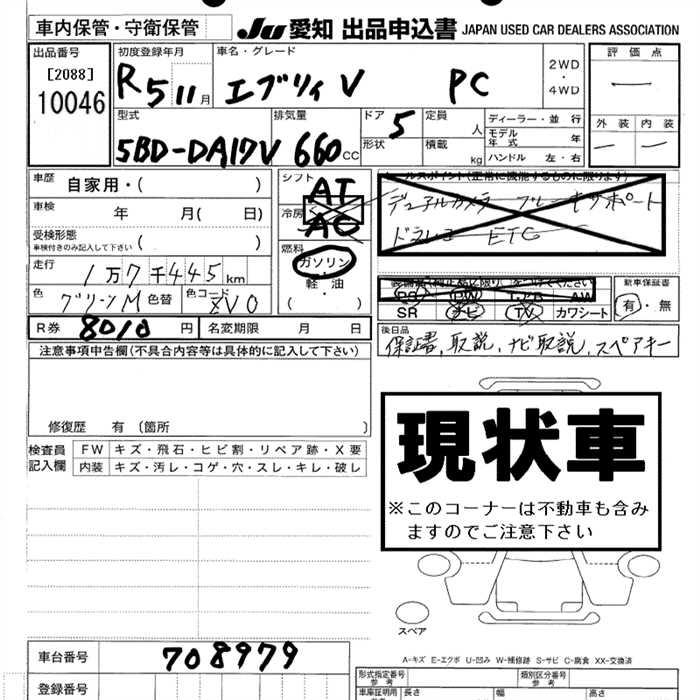 車内保管・守衛保管
JU 愛知 出品申込書 JAPAN USED CAR DEALERS ASSOCIATION
出品番号
[2088]
10046
初度登録年月
R 5 11 月
車名・グレード
エブリィ V PC
2WD
・
4WD
評価点
—
外装 内装
— —
型式
5BD-DA17V
排気量
660 CC
ドア 5
形状
定員 人
積載 kg
ディーラー・並行
モデル年式 年
ハンドル 左・右
車歴 自家用・( )
車検 年 月( 日)
受検形態
車検付きのみ記入して下さい ( )
走行 1万7千445km
色 グリーンM 色替 色コード ZVO
R券 8010 円 名変期限 月 日
シフト AT
冷房 AC
燃料
ガソリン
軽油
( ・ )
セールスポイント(正常に機能するものに限ります)
デュアルカメラ ブレーキサポート
ドラレコ ETC
装備品(純正品に限り)をつけてください
PS PW エアB AW
SR ナビ TV カワシート
新車保証書
有・無
後日品
保証書,取説,ナビ取説,スペアキー
注意事項申告欄(不具合内容等は具体的に記入して下さい)
修復歴 有 (箇所 )
検査員記入欄
FW キズ・飛石・ヒビ割・リペア跡・X要
内装 キズ・汚レ・コゲ・穴・スレ・キレ・破レ
現状車
※このコーナーは不動車も含み
ますのでご注意下さい
スペア
A-キズ E-エクボ U-凹み W-補修跡 S-サビ C-腐食 XX-交換済
車台番号 708979
登録番号
形式指定番号 参考
類別区分番号 参考
車庫証明用 参考 長さ 幅 高さ